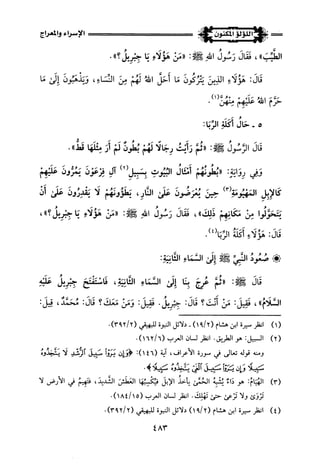 اللؤلؤ المكنون
الإسراء والمعراج
الطَّيِّبَ»، فَقَالَ رَسُولُ اللهِ ﷺ: «مَنْ هَؤُلَاءِ يَا جِبْرِيلُ؟».
قَالَ: هَؤُلَاءِ الَّذِينَ يَتْرُكُونَ مَا أَحَلَّ اللهُ لَهُمْ مِنَ النِّسَاءِ، وَيَذْهَبُونَ إِلَى مَا
حَرَّمَ اللهُ عَلَيْهِمْ مِنْهُنَّ(١).
٥ - حَالُ أَكَلَةِ الرِّبَا:
قَالَ الرَّسُولُ ﷺ: «ثُمَّ رَأَيْتُ رِجَالًا لَهُمْ بُطُونٌ لَمْ أَرَ مِثْلَهَا قَطُّ».
وَفِي رِوَايَةٍ: «بُطُونُهُمْ أَمْثَالُ الْبُيُوتِ بِسَبِيلِ(٢) آلِ فِرْعَوْنَ يَمُرُّونَ عَلَيْهِمْ
كَالإِبِلِ الْمَهْيُومَةِ(٣) حِينَ يُعْرَضُونَ عَلَى النَّارِ، يَطَؤُونَهُمْ لَا يَقْدِرُونَ عَلَى أَنْ
يَتَحَوَّلُوا مِنْ مَكَانِهِمْ ذَلِكَ»، فَقَالَ رَسُولُ اللهِ ﷺ: «مَنْ هَؤُلَاءِ يَا جِبْرِيلُ؟»،
قَالَ: هَؤُلَاءِ أَكَلَةُ الرِّبَا(٤).
صُعُودُ النَّبِيِّ ﷺ إِلَى السَّمَاءِ الثَّانِيَةِ:
قَالَ ﷺ: «ثُمَّ عُرِجَ بِنَا إِلَى السَّمَاءِ الثَّانِيَةِ، فَاسْتَفْتَحَ جِبْرِيلُ عَلَيْهِ
السَّلَامُ»، فَقِيلَ: مَنْ أَنْتَ؟ قَالَ: جِبْرِيلُ. فَقِيلَ: وَمَنْ مَعَكَ؟ قَالَ: مُحَمَّدٌ، قِيلَ:
(١) انظر سيرة ابن هشام (١٩/٢) - دلائل النبوة للبيهقي (٣٩٢/٢).
(٢) السبيل: هو الطريق. انظر لسان العرب (١٦٢/٦).
ومنه قوله تعالى في سورة الأعراف، آية (١٤٦): ﴿وَإِن يَرَوْا سَبِيلَ الرُّشْدِ لَا يَتَّخِذُوهُ
سَبِيلًا وَإِن يَرَوْا سَبِيلَ الْغَيِّ يَتَّخِذُوهُ سَبِيلًا﴾.
(٣) الهُيَامُ: هو دَاءٌ يُشْبِهُ الحُمَّى يأخذ الإبل فيُكْسِبُهَا العَطَشَ الشَّدِيدَ، فتهيمُ في الأرض لا
تَرْوَى ولا تَرْعَى حتى تَهْلِكَ. انظر لسان العرب (١٨٤/١٥).
(٤) انظر سيرة ابن هشام (١٩/٢) دلائل النبوة للبيهقي (٣٩٢/٢).
٤٨٣